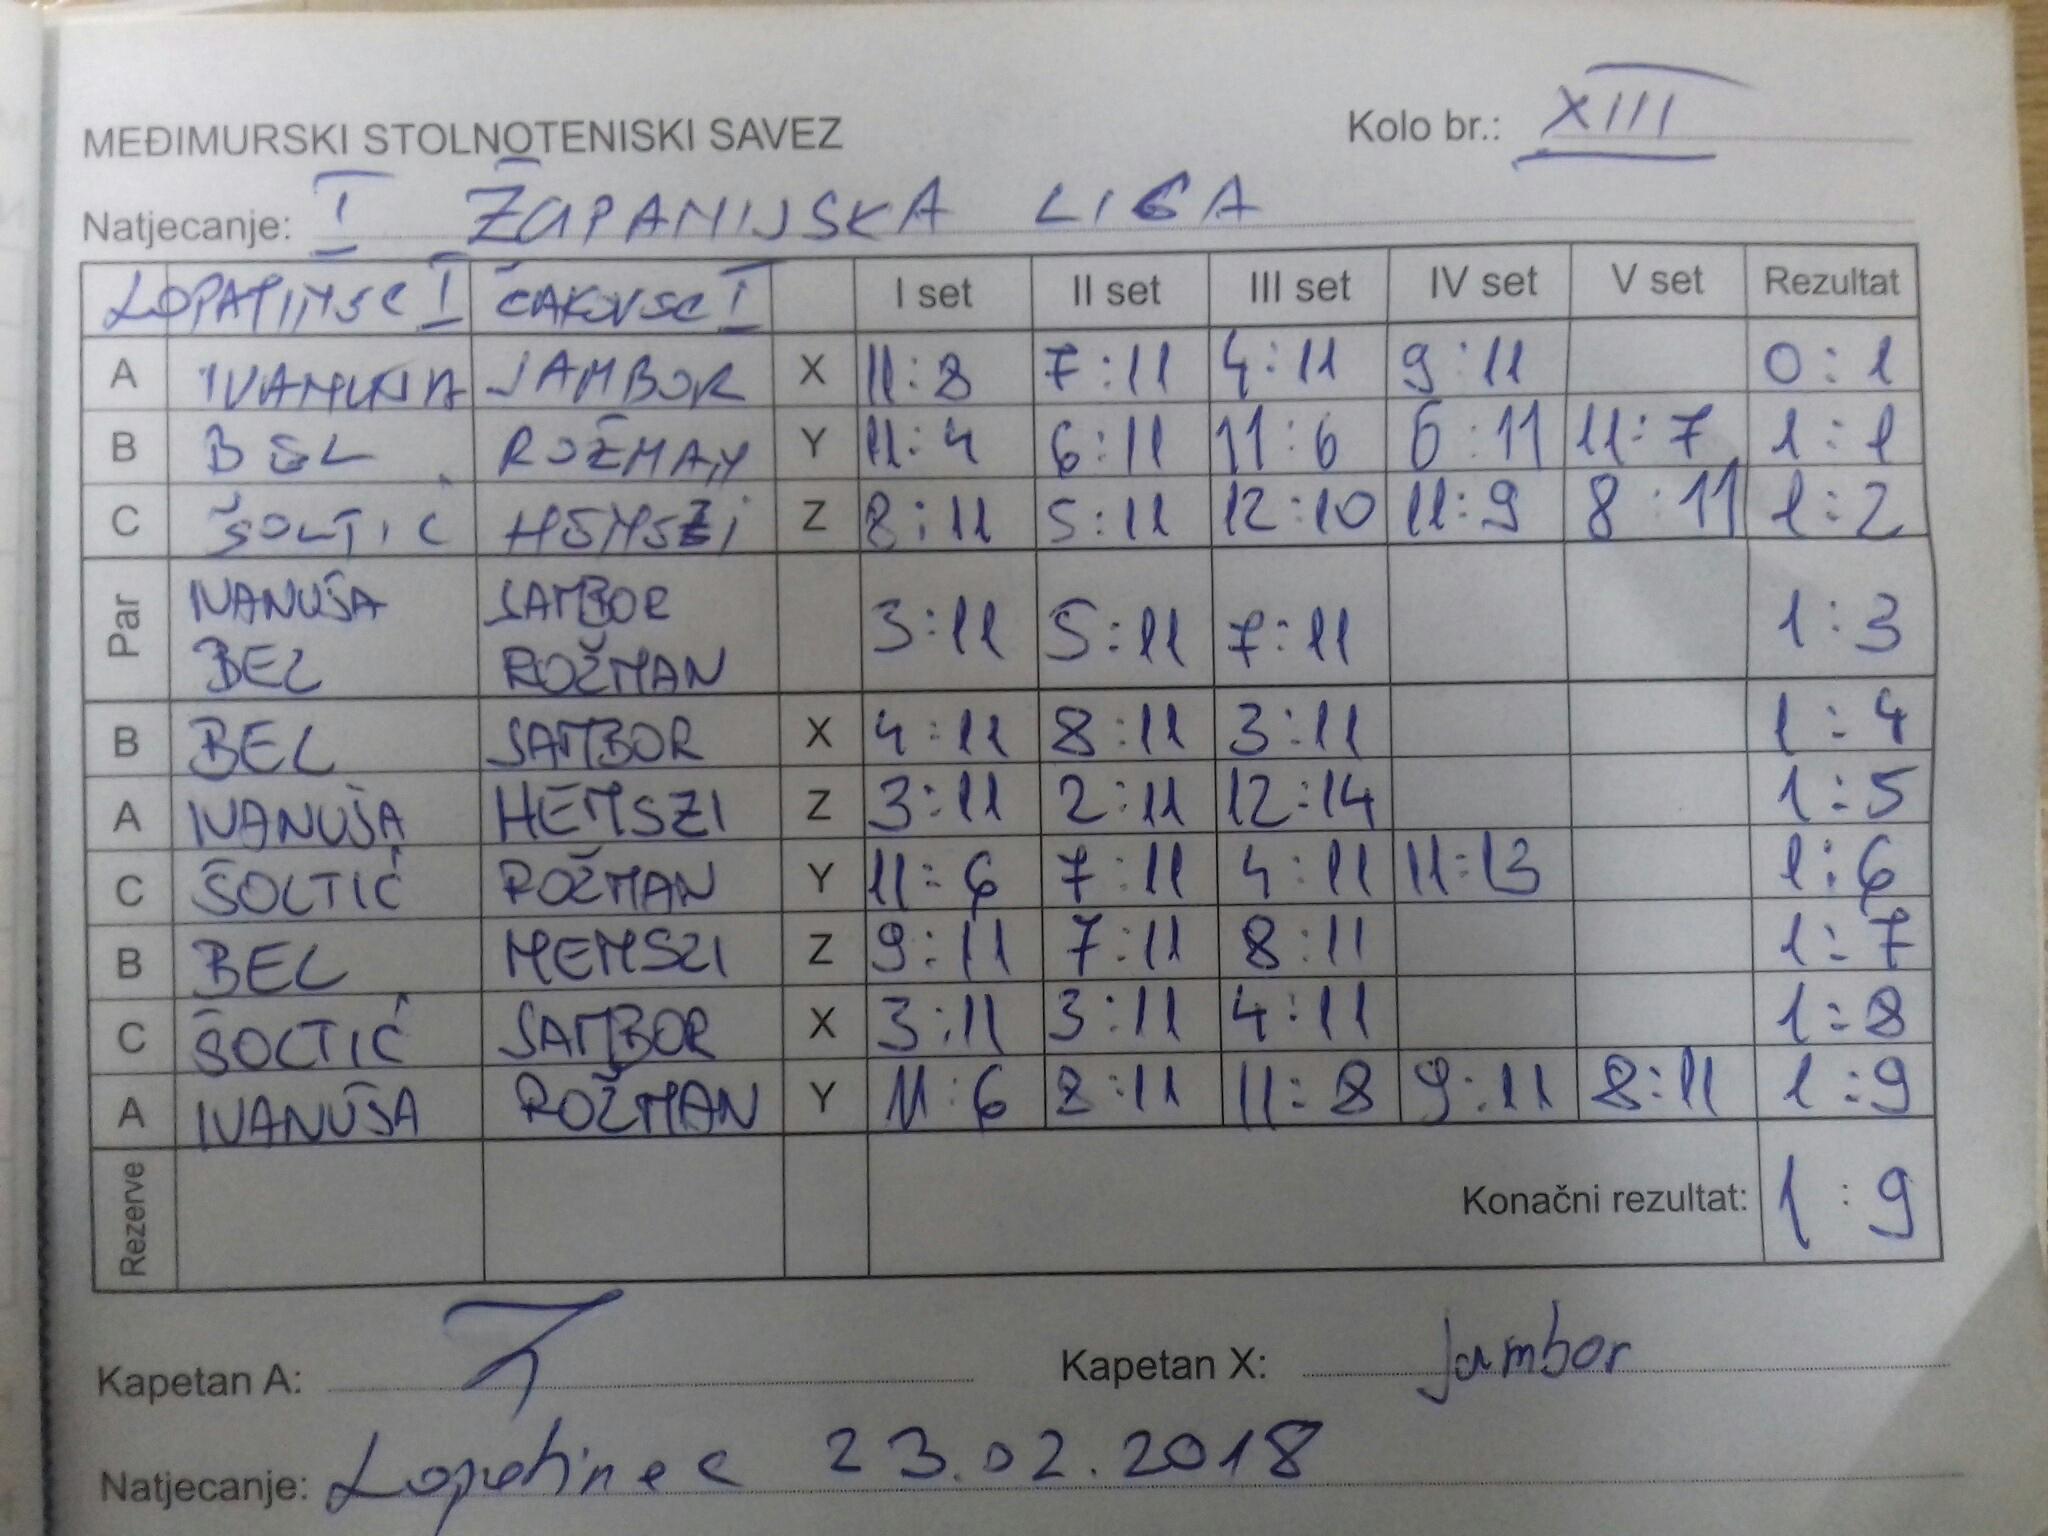 MEĐIMURSKI STOLNOTENISKI SAVEZ Kolo br.: XIII
Natjecanje: I ŽUPANIJSKA LIGA
LOPATINEC I ČAKOVEC I I set II set III set IV set V set Rezultat
A IVANUŠA JAMBOR X 11:8 7:11 4:11 9:11 0:1
B BEL ROŽMAN Y 11:4 6:11 11:6 6:11 11:7 1:1
C ŠOLTIĆ HEMSZI Z 8:11 5:11 12:10 11:9 8:11 1:2
Par IVANUŠA JAMBOR 3:11 5:11 7:11 1:3
BEL ROŽMAN
B BEL JAMBOR X 4:11 8:11 3:11 1:4
A IVANUŠA HEMSZI Z 3:11 2:11 12:14 1:5
C ŠOLTIĆ ROŽMAN Y 11:6 7:11 4:11 11:13 1:6
B BEL HEMSZI Z 9:11 7:11 8:11 1:7
C ŠOLTIĆ JAMBOR X 3:11 3:11 4:11 1:8
A IVANUŠA ROŽMAN Y 11:6 8:11 11:8 9:11 8:11 1:9
Rezerve Konačni rezultat: 1:9
Kapetan A: Kapetan X: Jambor
Natjecanje: Lopatinec 23.02.2018